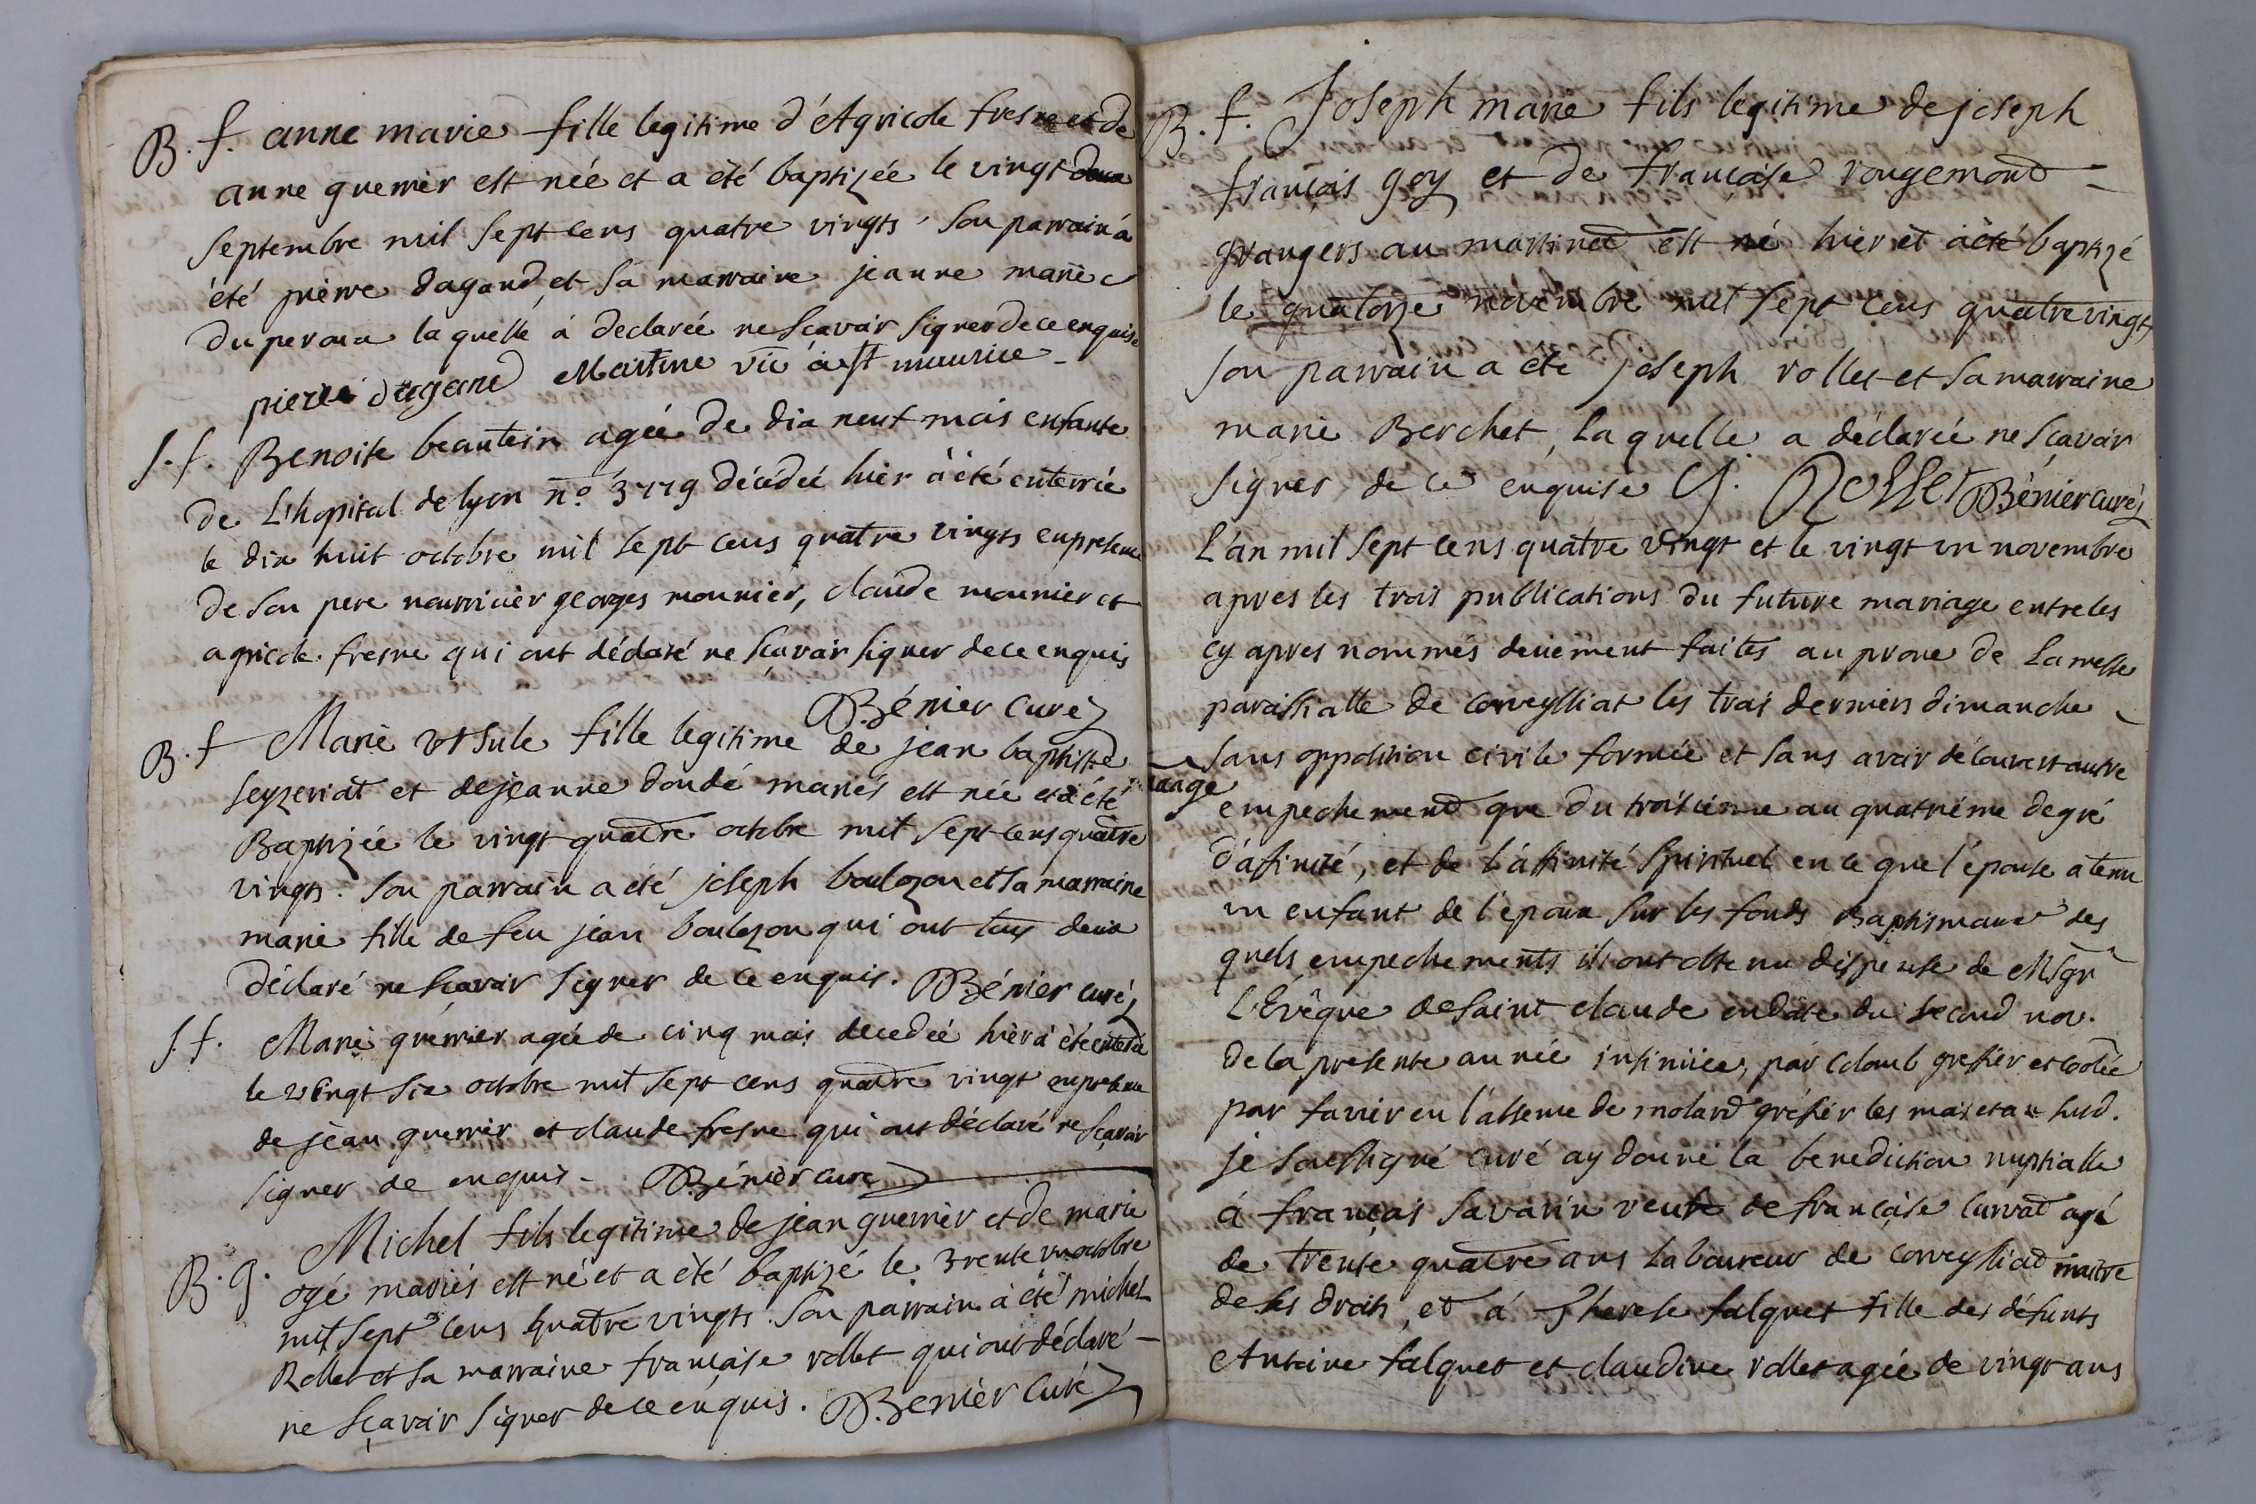 B. f. anne marie fille legitime d'Agricole fresne et de
anne guerrier est née et a été baptizée le vingt deux
septembre mil sept cens quatre vingts, son parrain à
été pierre dagand, et sa marraine jeanne marie
duperoux la quelle á declarée ne scavoir signer de ce enquise
pierre dagand Martine vic à st maurice
S. f. Benoite beautein agée de dix neuf mois enfante
de L'hopital de lyon no. 3779 décédée hier à été enterrée
le dix huit octobre mil sept cens quatre vingts en presence
de son pere nourricier georges mounier, claude mounier et
agricole fresne qui ont déclaré ne sçavoir signer de ce enquis
Bénier curé
B. f Marie ursule fille legitime de jean baptiste
seyzeriat et de jeanne dondé mariés est née et a été
Baptizée le vingt quatre octobre mil sept cens quatre
vingts. son parrain a été joseph boulezon et sa marraine
marie fille de feu jean boulezon qui ont tous deux
déclaré ne scavoir signer de ce enquis. Bénier curé
S. f. Marie guerrier agée de cinq mois decedée hier à été enterrée
le vingt six octobre mil sept cens quatre vingt en presence
de jean guerrier et claude fresne qui ont déclaré ne sçavoir
signer de enquis - Bénier curé
B. g. Michel fils legitime de jean guerrier et de marie
ogé mariés est né et a été baptizé le trente un octobre
mil sept cens quatre vingts. Son parrain à été michel
Rollet et sa marraine françoise rollet qui ont déclaré -
ne sçavoir signer de ce enquis. Benier Curé
B. f. Joseph marie fils legitime de joseph
françois goy et de françoise rougemond
grangers au martinet est né hier et à été baptizé
le quatorze novembre mil sept cens quatre vingts
son parrain a été joseph rollet et sa marraine
marie Berchet, la quelle a déclarée ne sçavoir
signer de ce enquise J. Rollet Bénier curé
L'an mil sept cens quatre vingt et le vingt un novembre
apres les trois publications du future mariage entre les
cy apres nommés deuement faites au prone de La messe
paroissialle de corveylliat les trois derniers dimanche
sans opposition civile formée et sans avoir découvert autre
empechement que du troisieme au quatriéme degré
d'afinité, et de l'affinité spirituel en ce que l'épouse a tenu
un enfant de l'epoux sur les fonds Baptismaux des
quels empechements ils ont obtenu dispense de Msgr
L'Evêque de saint claude en date du second nov.
de la presente année insinüée, par colomb grefier et
par favier en l'absence de molard gréfier les mois et an sud.
je soussigné curé ay donné la benediction nuptialle
á françois savarin veuf de françoise curvat agé
de trente quatre ans laboureur de corveylliat maitre
de ses droits, et á Therese falquet fille des défunts
Antoine falquet et claudine rollet agée de vingt ans